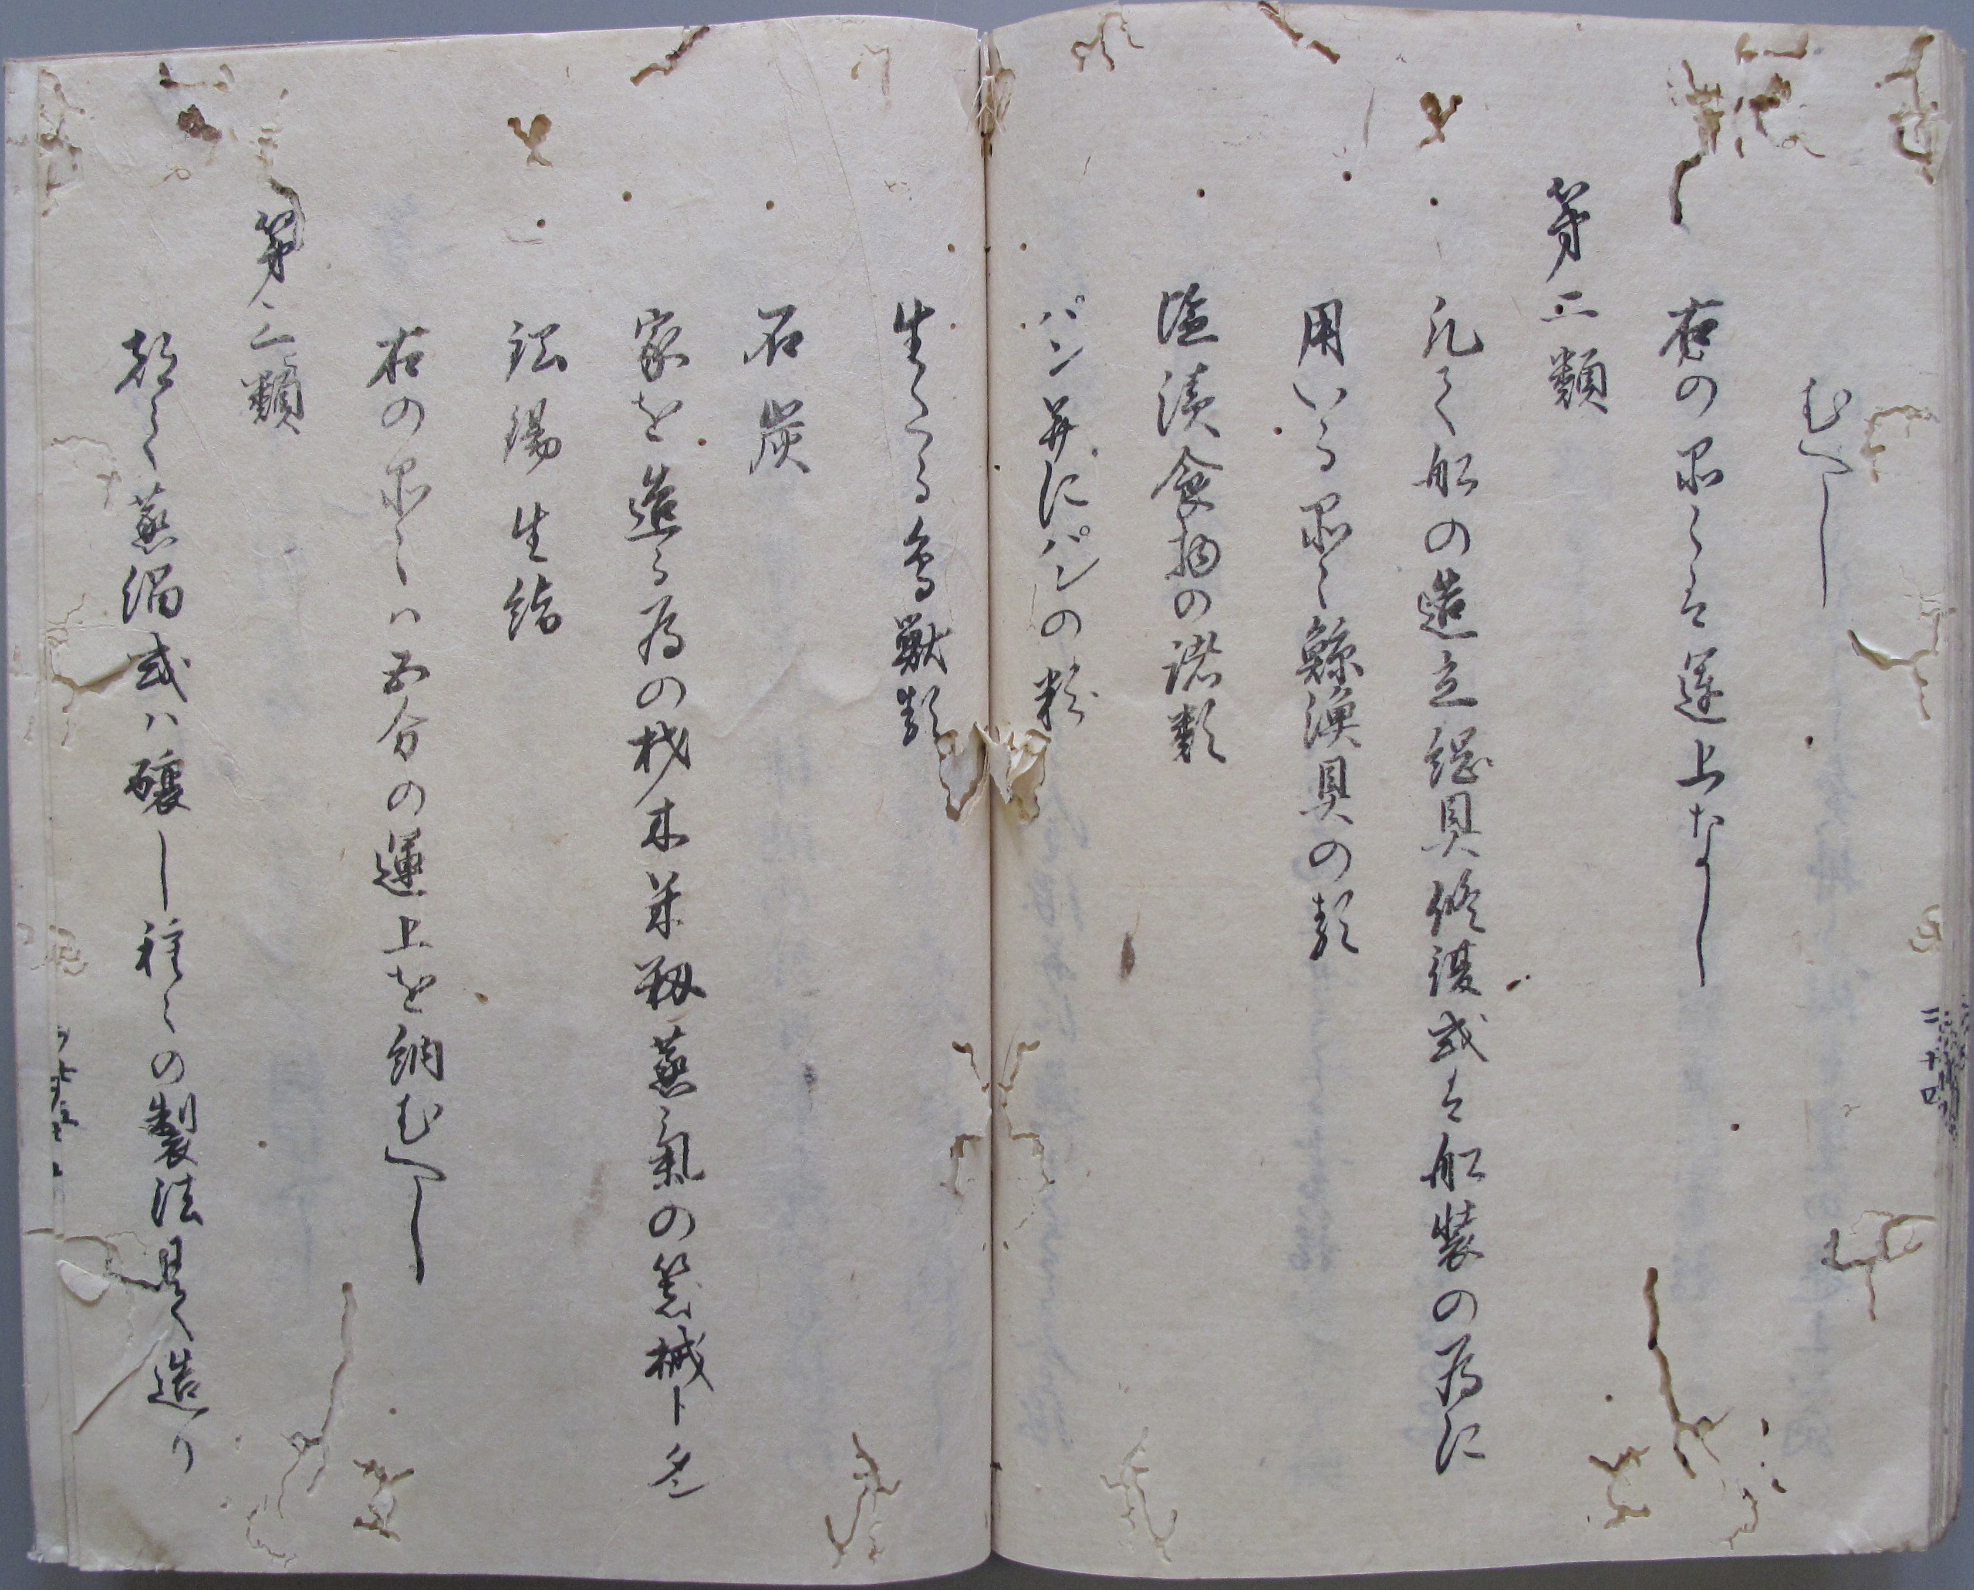 むへし
右の品々は運上なし
第二類
凡て船の造立綱具修復或は船装の為に
用いる品々鯨漁具の類
塩漬食物の諸類
パン并にパンの粉
生たる鳥獣類
石炭
家を造る為の材木米籾蒸氣の器械トタン
鉛錫生絹
右の品々ハ五分の運上を納むへし
第三類
都て蒸溜或ハ醸し種々の製法にて造り
二十四